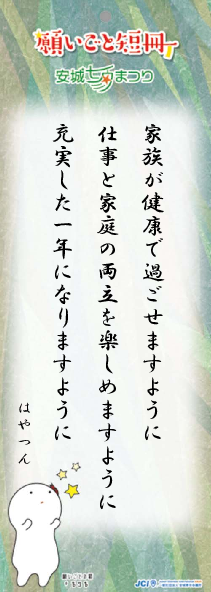 願いごと短冊
安城七夕まつり
家族が健康で過ごせますように
仕事と家庭の両立を楽しめますように
充実した一年になりますように
はやつん
JCI